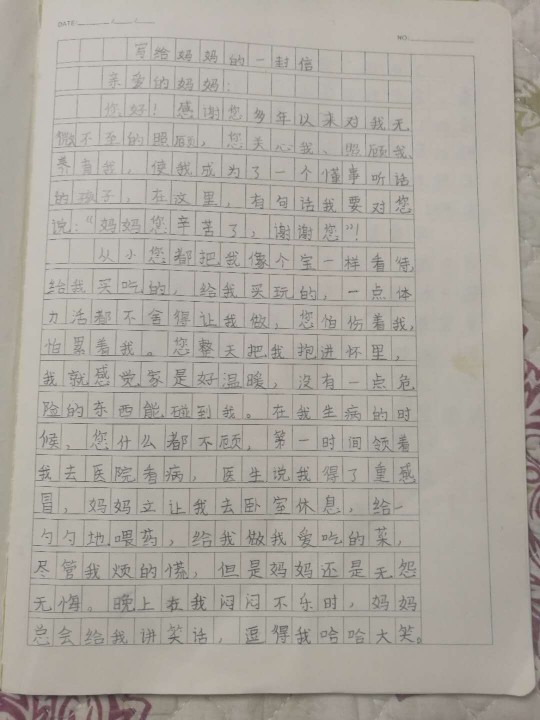 DATE: / /
NO:
写给妈妈的一封信
亲爱的妈妈:
你好!感谢您多年以来对我无
微不至的照顾,您关心我、照顾我、
养育我,使我成为了一个懂事听话
的孩子,在这里,有句话我要对您
说:“妈妈您辛苦了,谢谢您”!
从小您都把我像个宝一样看待,
给我买吃的,给我买玩的,一点体
力活都不舍得让我做,您怕伤着我,
怕累着我。您整天把我抱进怀里,
我就感觉家是好温暖,没有一点危
险的东西能碰到我。在我生病的时
候,您什么都不顾,第一时间领着
我去医院看病,医生说我得了重感
冒,妈妈立让我去卧室休息,给一
勺勺地喂药,给我做我爱吃的菜,
尽管我烦的慌,但是妈妈还是无怨
无悔。晚上在我闷闷不乐时,妈妈
总会给我讲笑话,逗得我哈哈大笑。